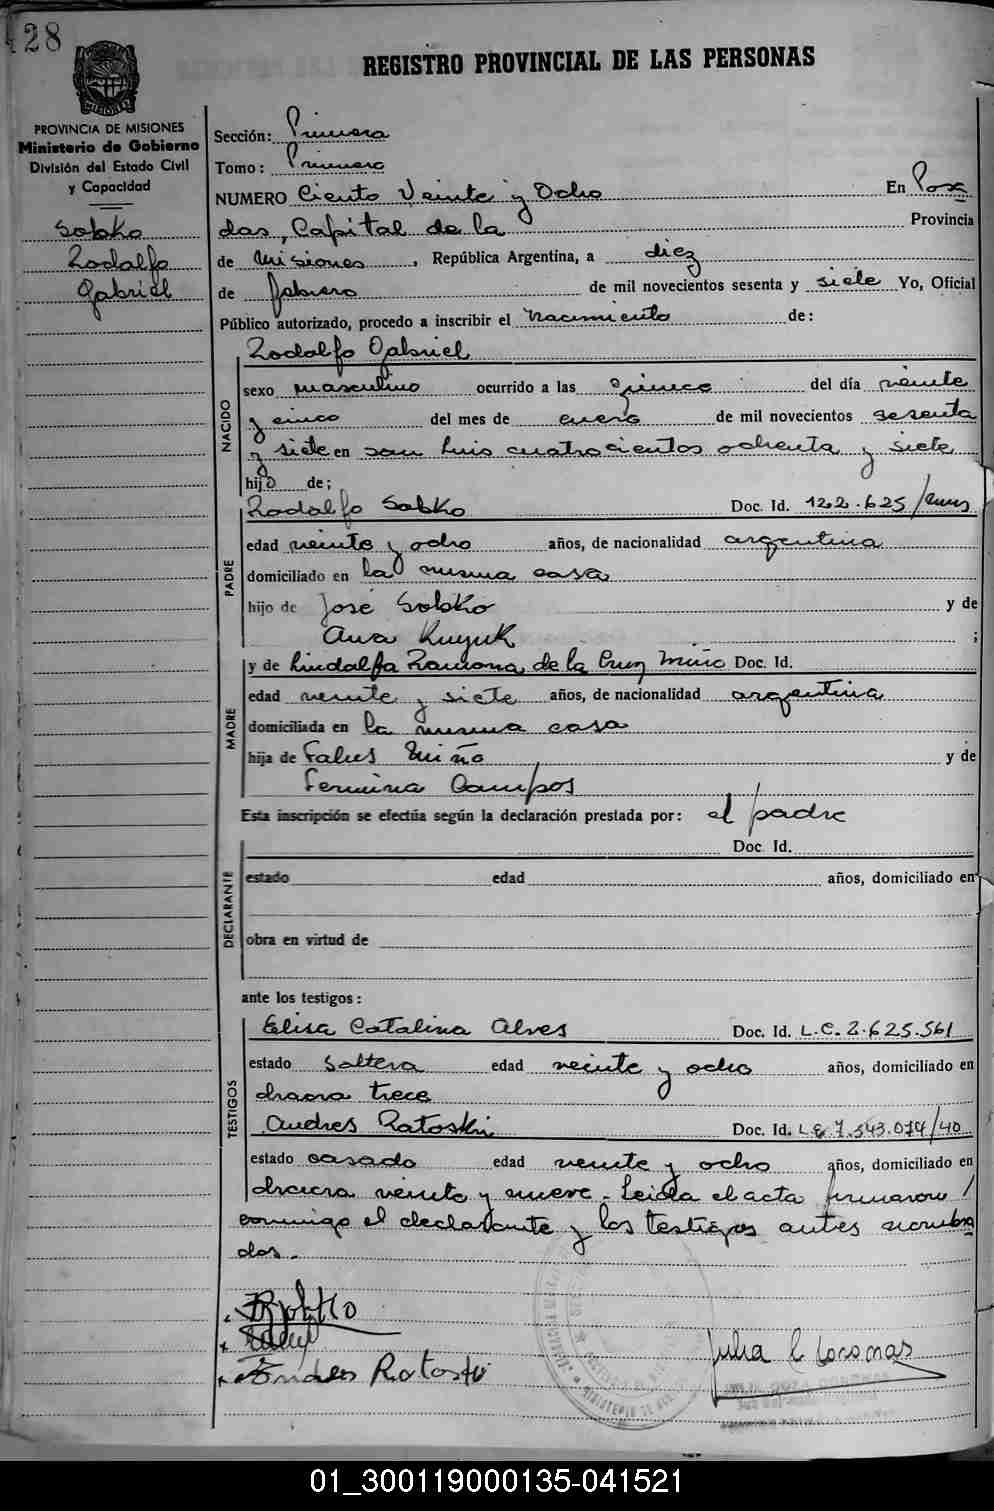 128
REGISTRO PROVINCIAL DE LAS PERSONAS
MISIONES
PROVINCIA DE MISIONES
Ministerio de Gobierno
División del Estado Civil
y Capacidad
Sobko
Rodolfo
Gabriel
Sección: Primera
Tomo: Primero
NUMERO Ciento Veinte y Ocho En Posa
das, Capital de la Provincia
de Misiones, República Argentina, a diez
de febrero de mil novecientos sesenta y siete Yo, Oficial
Público autorizado, procedo a inscribir el Nacimiento de:
NACIDO
Rodolfo Gabriel
sexo masculino ocurrido a las cinco del día veinte
y cinco del mes de enero de mil novecientos sesenta
y siete en San Luis cuatrocientos ochenta y siete
hijo de;
PADRE
Rodolfo Sobko Doc. Id. 122.625/
edad veinte y ocho años, de nacionalidad argentina
domiciliado en la misma casa
hijo de José Sobko y de
Ana ;
MADRE
y de Lindolfa Ramona de la Cruz Miño Doc. Id.
edad veinte y siete años, de nacionalidad argentina
domiciliada en la misma casa
hija de Miño y de
Fermina Campos
Esta inscripción se efectúa según la declaración prestada por: el padre
DECLARANTE
Doc. Id.
estado edad años, domiciliado en
obra en virtud de
ante los testigos:
TESTIGOS
Elisa Catalina Alves Doc. Id. L.C. 2.625.561
estado soltera edad veinte y ocho años, domiciliado en
chacra trece
Andres Ratoski Doc. Id. LE 7.543.074/40
estado casado edad veinte y ocho años, domiciliado en
chacra veinte y nueve - Leida el acta firmaron /
conmigo el declarante y los testigos antes nombra
dos.-
Andres Ratoski
Julia C Coronas
01_300119000135-041521